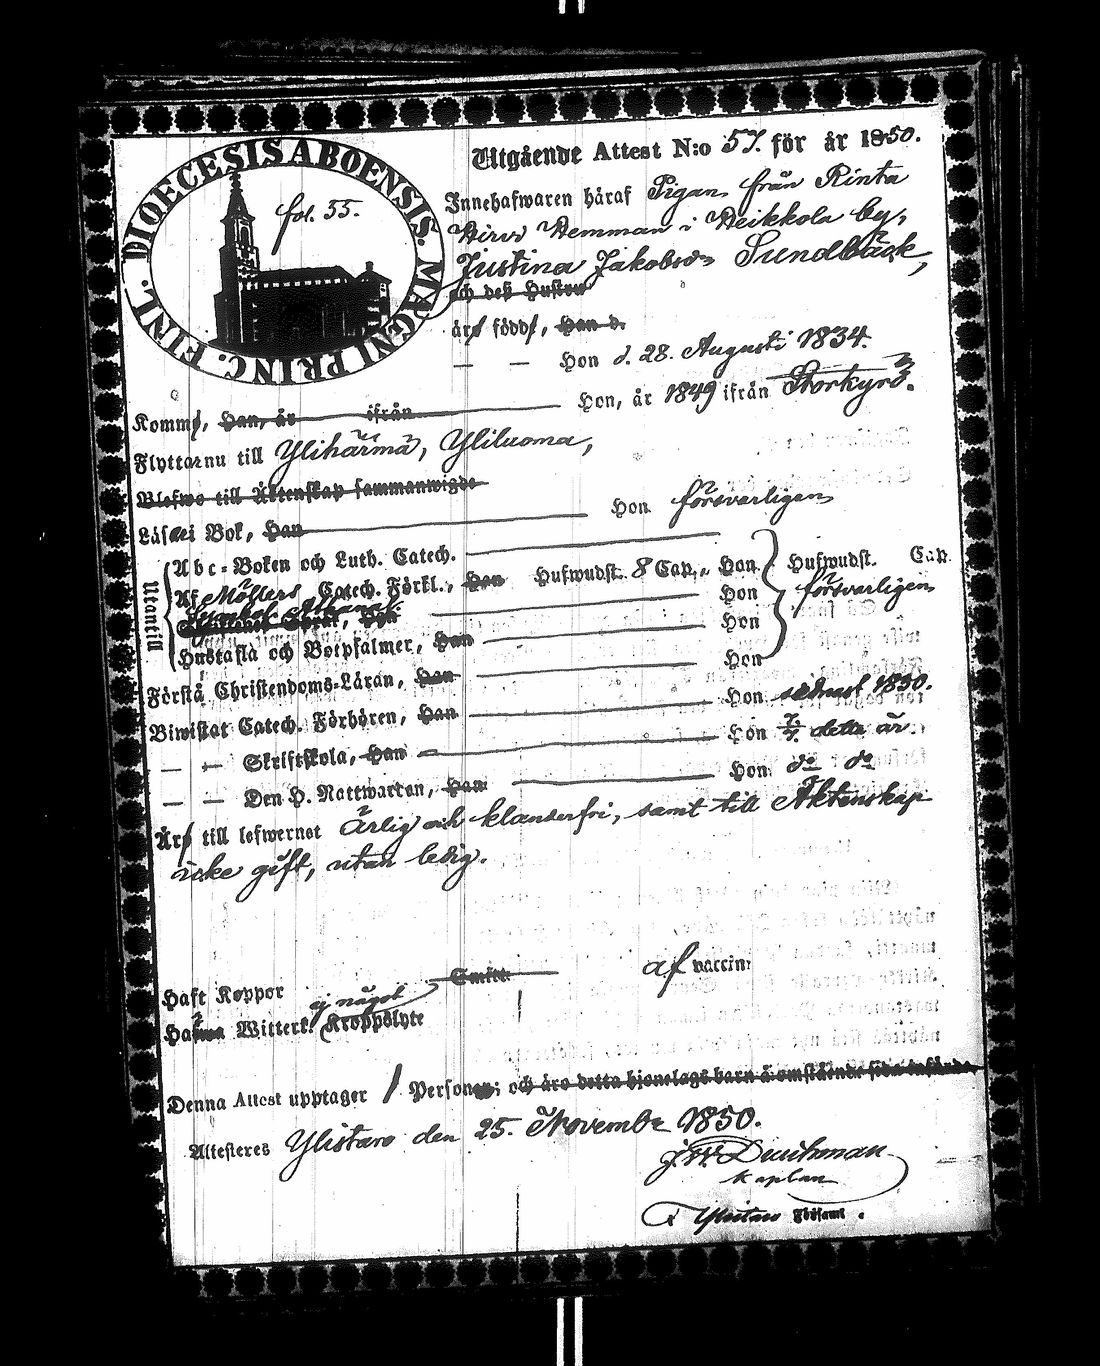 DIOECESIS ABOENSIS. MAGNI PRINC. FINL.
fol. 55.
Utgående Attest N:o 57. för år 1850.
Innehafwaren häraf Pigan från Rinta
Hirvi Hemman i Heikkola by,
Justina Jakobsd:r Sundbäck,
och deß Hustru
är född, Han d.
— — Hon d. 28. Augusti 1834.
Komm, Han, år ifrån Hon, år 1849 ifrån Storkyrö.
Flyttar nu till Ylihärmä, Yliluoma,
Blefwo till Äktenskap sammanwigde
Läser i Bok, Han Hon försvarligen
Utantill
Abc-Boken och Luth. Catech.
Af Möllers Catech. Förkl., Han Hufwudst. 8 Cap., Hon Hufwudst. Cap.
försvarligen
Symbol. Athanas. Hon
Hustafla och Botpsalmer, Han Hon
Förstå Christendoms-Läran, Han Hon
Biwistat Catech. Förhören, Han Hon 1850.
— — Skriftskola, Han Hon 7/7 detta år.
— — Den H. Nattwarden, Han Hon do do
Är till lefwernet ärlig och klanderfri, samt till Äktenskap
icke gift, utan ledig.
Haft Koppor Smitt. af vaccin.
Hafwa Witterl. ej något Kroppslyte
Denna Attest upptager 1 Person; och äro detta hjonelags barn å omstående sida införda
Attesteres Ylistaro den 25. Novembr 1850.
Kaplan
i Ylistaro Förсaml.